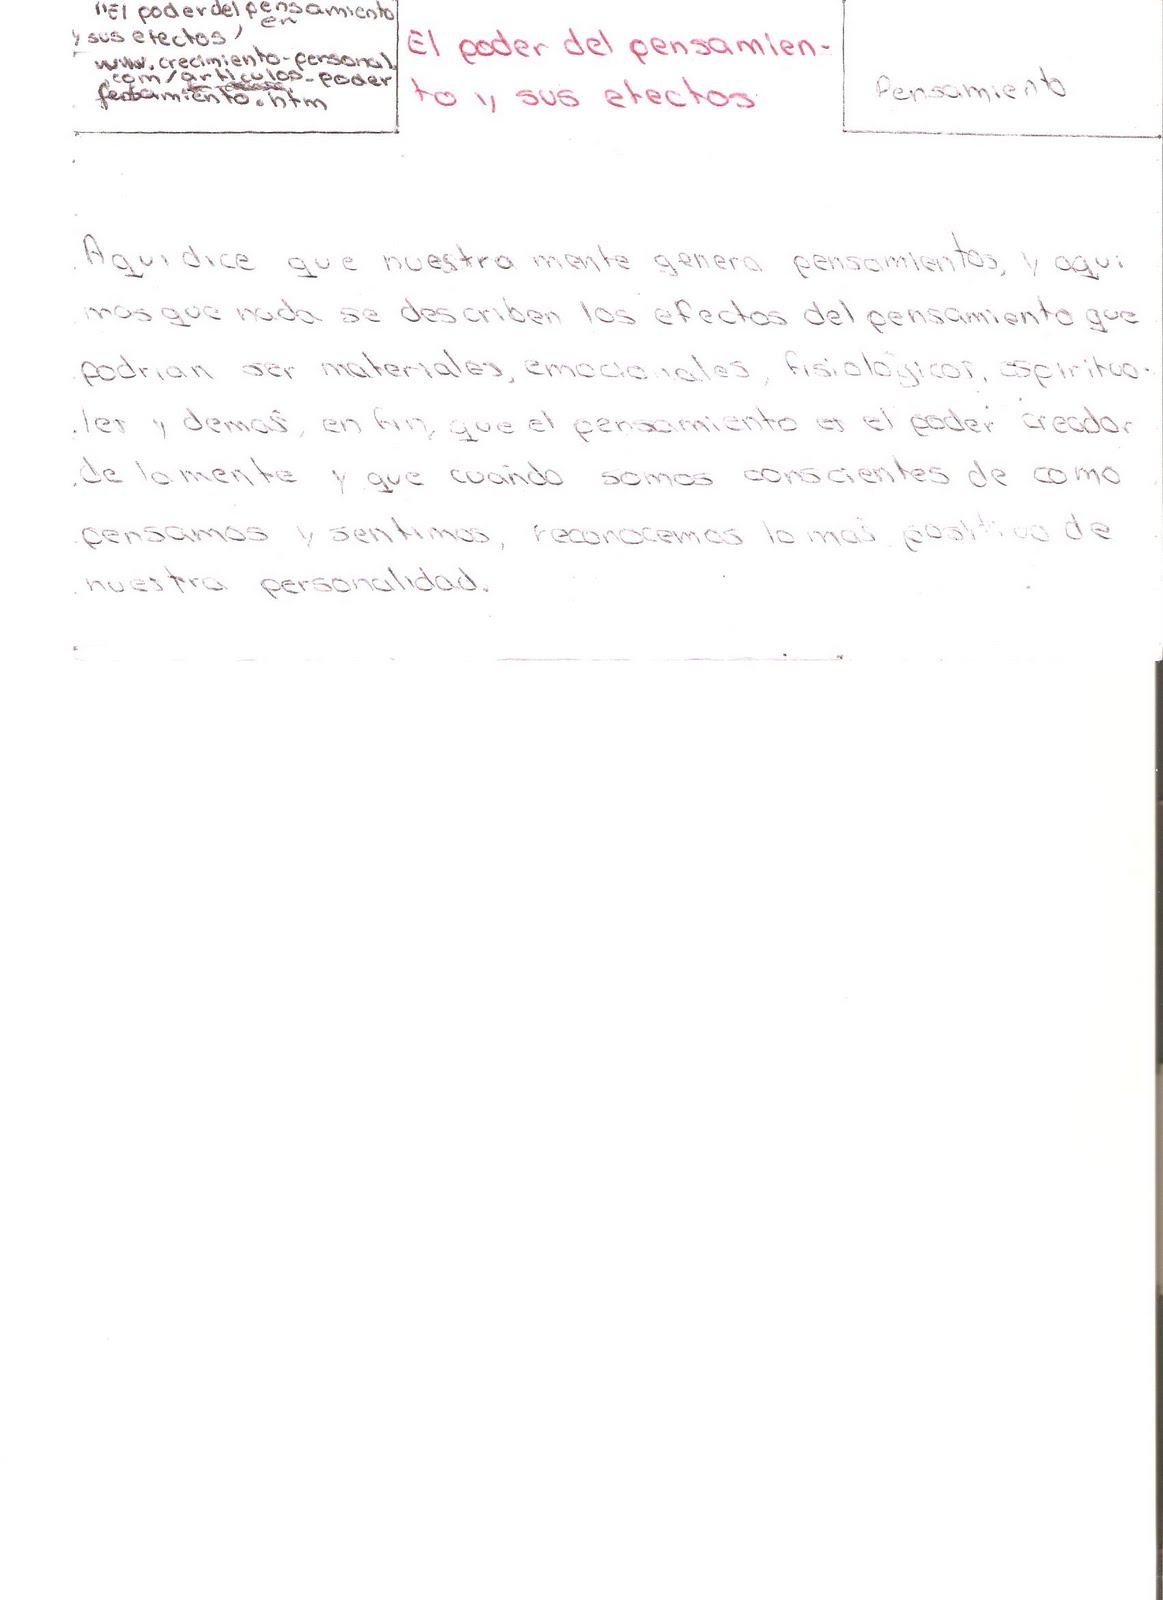 "El poder del pensamiento
y sus efectos" en
www.crecimiento-personal
.com/articulos-poder
.htm
El poder del pensamien-
to y sus efectos
Pensamiento
Aqui dice que nuestra mente genera pensamientos, y aqui
mas que nada se describen los efectos del pensamiento que
podrian ser materiales, emocionales, fisiológicos, espiritua-
les y demas, en fin, que el pensamiento es el poder creador
de la mente y que cuando somos conscientes de como
pensamos y sentimos, reconocemos lo mas positivo de
nuestra personalidad.